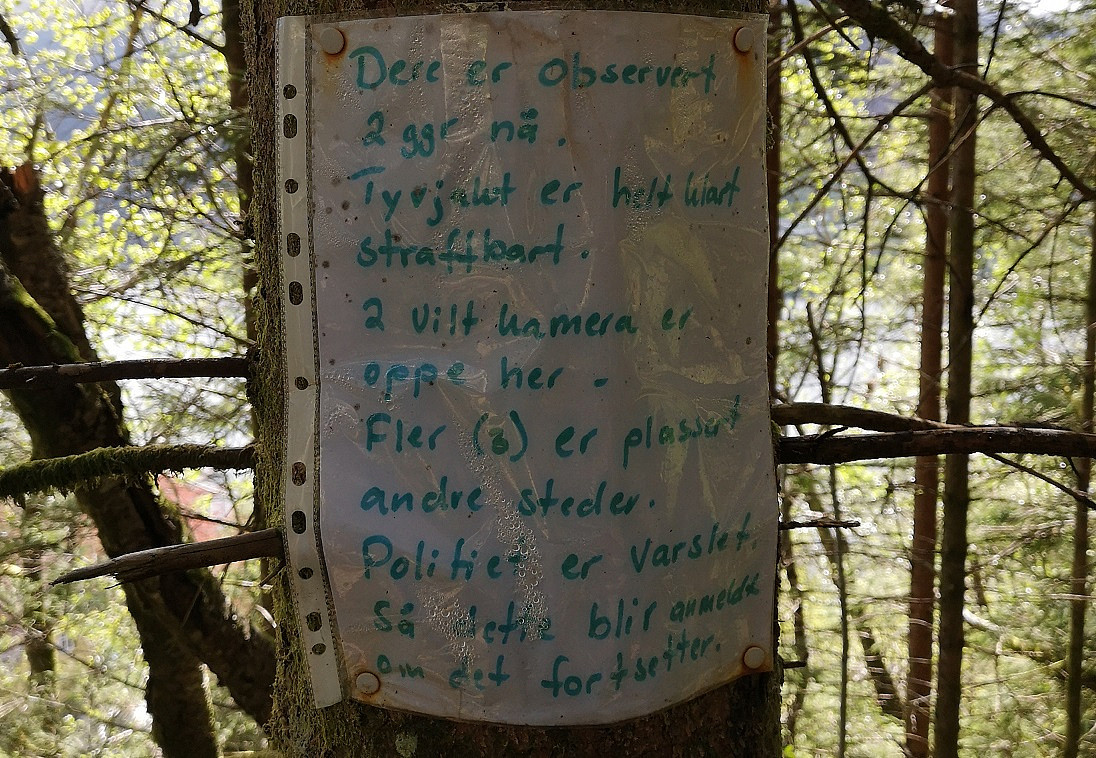 Dere er observert
2 ggr nå.
Tyvjakt er helt klart
straffbart.
2 vilt kamera er
oppe her -
Fler (3) er plassert
andre steder.
Politiet er varslet.
Så dette blir anmeldt
om det fortsetter.